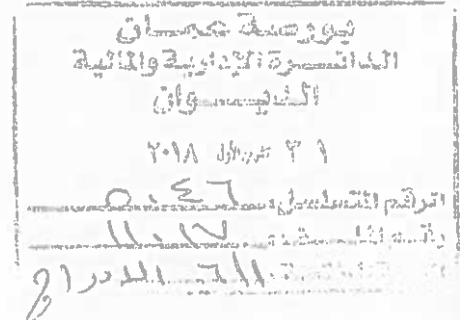 بورصة عمان
الدائرة الإدارية والمالية
الديوان
٣١ تشرين الأول ٢٠١٨
الرقم المتسلسل ٥٠٤٦
رقم الملف ١١٠١٧
الإدراج